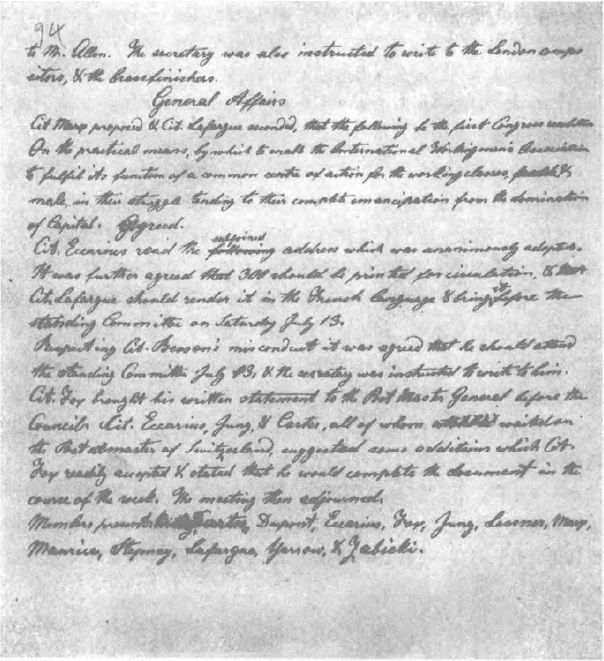 94
to Mr. Allen. The secretary was also instructed to write to the London compo
sitors, & the brassfinishers.
General Affairs
Cit Marx proposed & Cit. Lafargue seconded, that the following be the first Congress resolution
On the practical means, by which to enable the International Workingmen's Association
to fulfil its function of a common centre of action for the working classes, female &
male, in their struggle tending to their complete emancipation from the domination
of Capital. Agreed.
Cit. Eccarius read the following subjoined address which was unanimously adopted.
It was further agreed that 300 should be printed for circulation, & that
Cit. Lafargue should render it in the French language & bring it before the
standing Committee on Saturday July 13.
Respecting Cit. Benson's misconduct it was agreed that he should attend
the standing Committee July 13, & the secretary was instructed to write to him.
Cit. Fox brought his written statement to the Post Master General before the
Council. Cit. Eccarius, Jung, & Carter, all of whom waited on
the Postmaster of Switzerland, suggested some additions which Cit.
Fox readily accepted & stated that he would complete the document in the
course of the week. The meeting then adjourned.
Members present: Carter, Dupont, Eccarius, Fox, Jung, Lessner, Marx,
Maurice, Stepney, Lafargue, Yarrow, & Zabicki.